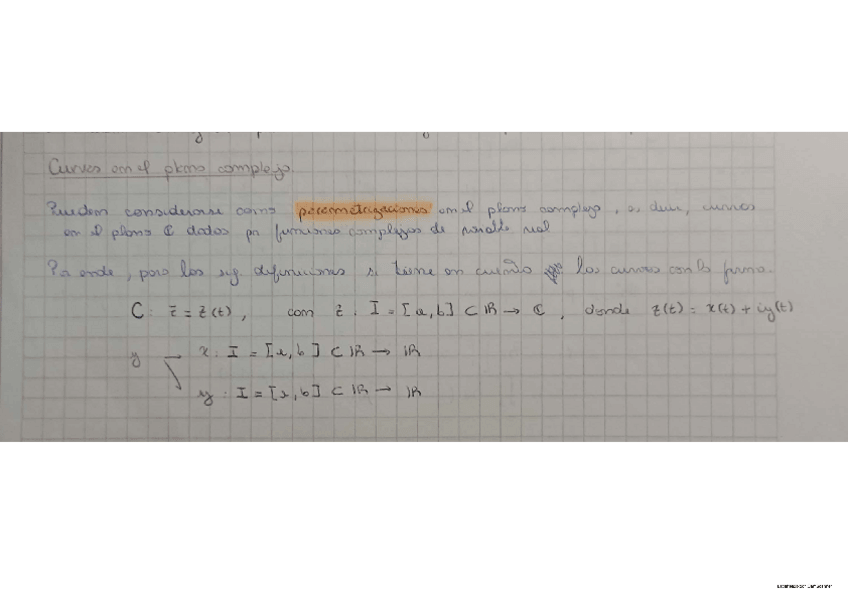 Curvas en el plano complejo.
Pueden considerarse como parametrizaciones en el plano complejo, es decir, curvas
en el plano ℂ dadas por funciones complejas de variable real
Por ende, para las sig. definiciones se tiene en cuenta las curvas con la forma.
C: z = z(t), con z: I = [a,b] ⊂ ℝ → ℂ, donde z(t) = x(t) + iy(t)
y → x: I = [a,b] ⊂ ℝ → ℝ
y: I = [a,b] ⊂ ℝ → ℝ